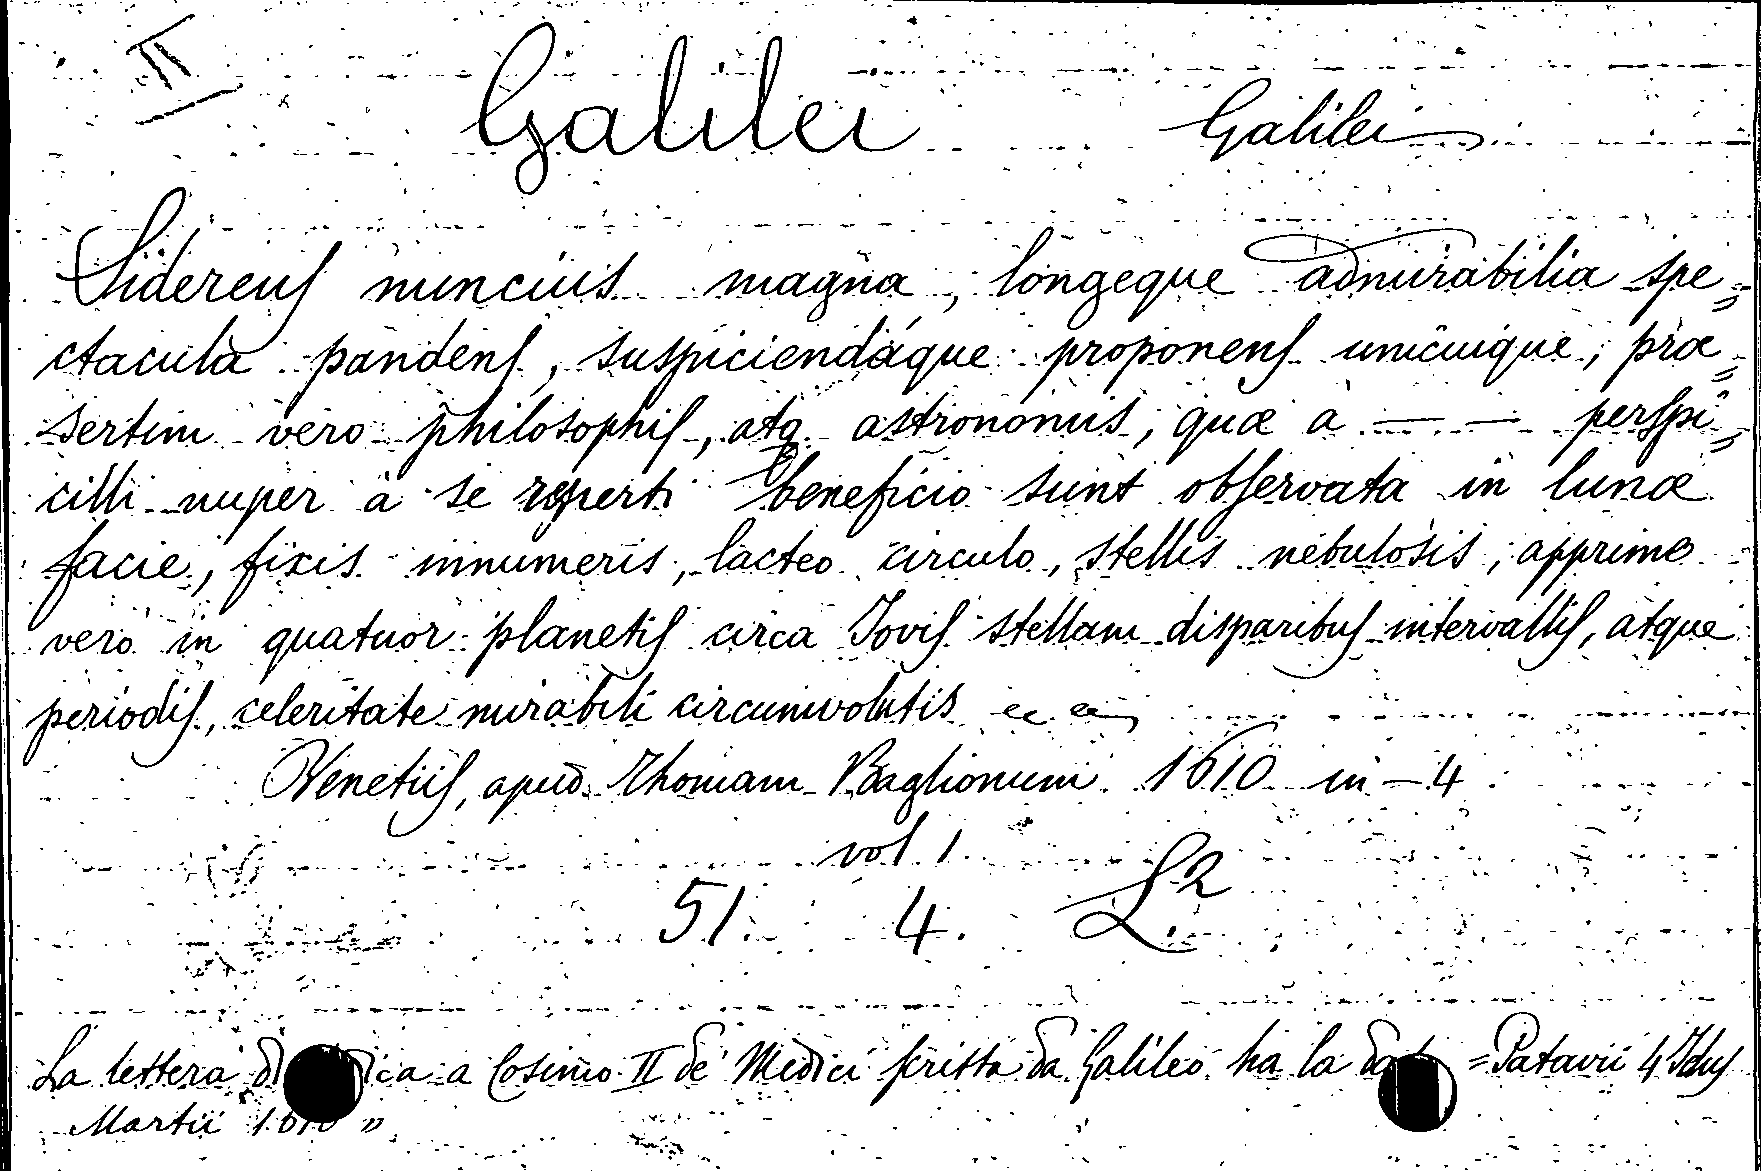 II
Galilei Galilei
Sidereus nuncius magna, longeque admirabilia spe„
ctacula pandens, suspiciendáque proponens unicuique, præ„
sertim vero philosophis, atq. astronomis, quæ à — — perspi„
cilli nuper à se reperti beneficio sunt observata in lunæ
facie, fixis innumeris, lacteo circulo, stellis nebulosis, apprime
vero in quatuor planetis circa Jovis stellam disparibus intervallis, atque
periodis, celeritate mirabili circumvolutis
Venetiis, apud Thomam Baglionum 1610 in-4
vol. 1
51. 4. L.2
La lettera a Cosimo II de' Medici scritta da Galileo ha la =Patavii 4 Idus
Martii 1610 "